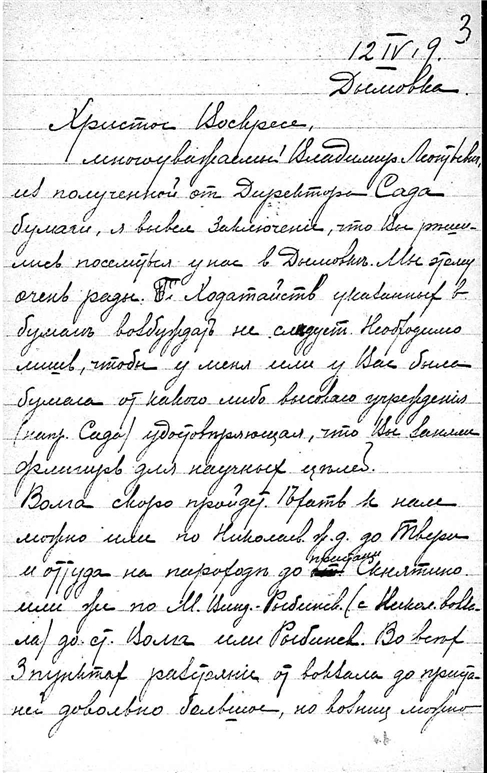 3
12 IV 19.
Дымовка.
Христос Воскресе,
многоуважаемый Владимир Леонтьевич,
из полученной от Директора Сада
бумаги, я вывел заключение, что Вы реши-
лись поселиться у нас в Дымовке. Мы этому
очень рады. Ходатайств указанных в
бумагѣ возбуждать не следует. Необходимо
лишь, чтобы у меня или у Вас была
бумага от какого либо высокаго учреждения
(напр. Сада) удостовѣряющая, что Вы заняли
флигирь для научных цѣлей.
Волга скоро пройдет. Ѣхать к нам
можно или по Николаев. ж. д. до Твери
и оттуда на пароходѣ до пристани Скнятино
или же по М. Винд.-Рыбинск. (с Никол. вокза-
ла) до ст. Волга или Рыбинск. Во всѣх
3 пунктах разстояние от вокзала до приста-
ней довольно большое, но возниц можно